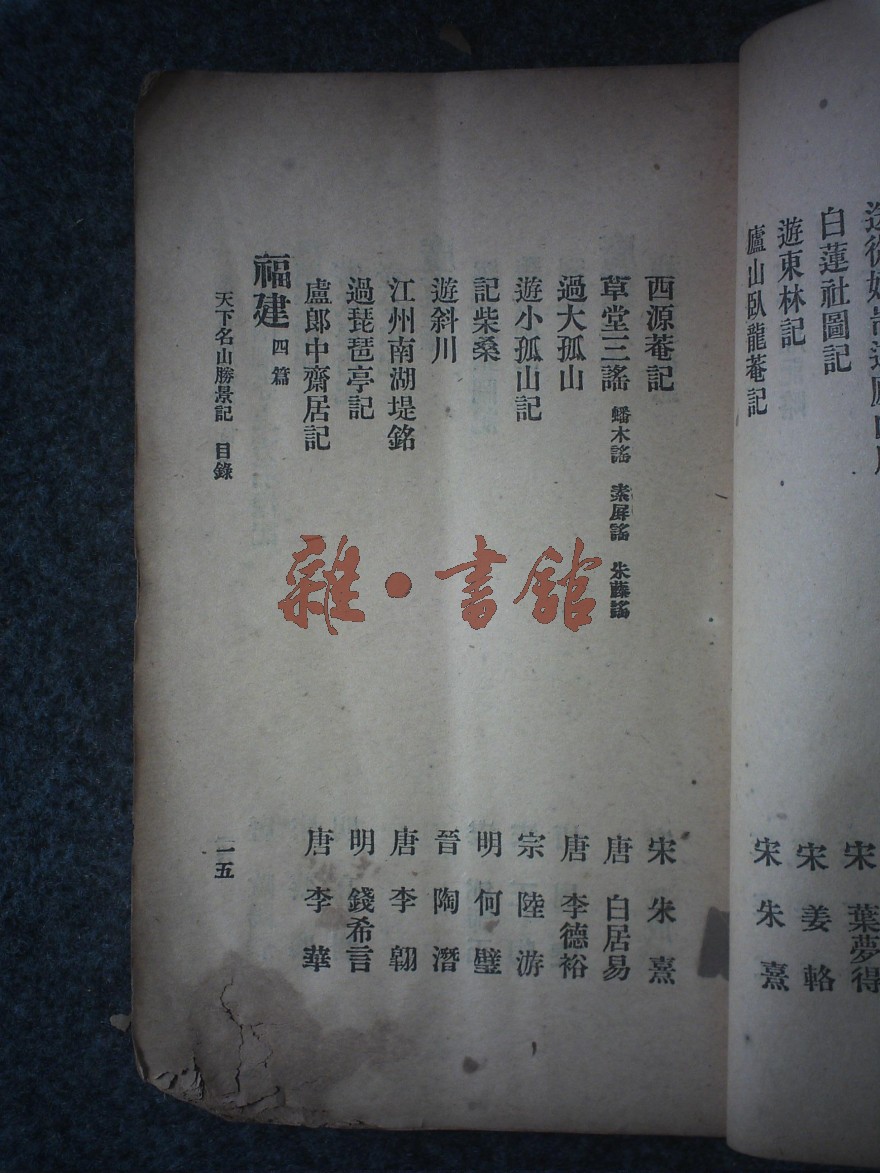 葉夢得
宋
白蓮社圖記 宋 姜 輅
遊東林記 宋 朱 熹
廬山臥龍菴記
西源菴記 宋 朱 熹
草堂三謠 蟠木謠 素屏謠 朱藤謠 唐 白居易
過大孤山 唐 李德裕
遊小孤山記 宗 陸 游
記柴桑 明 何 璧
遊斜川 晉 陶 潛
江州南湖堤銘 唐 李 翱
過琵琶亭記 明 錢希言
盧郎中齋居記 唐 李 華
福建 四篇
天下名山勝景記 目錄 一五
雜·書舘